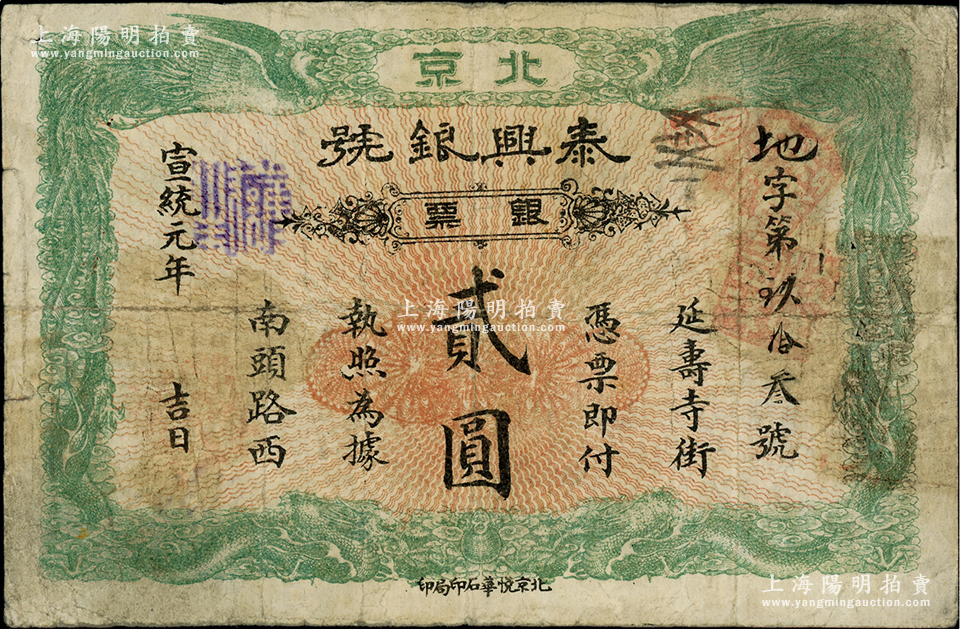 上海陽明拍賣
www.yangmingauction.com
北京
泰興銀號
銀票
地字第玖拾叁號
延壽寺街
憑票即付
貳圓
執照為據
南頭路西
宣統元年 吉日
北京悅華石印局印
上海陽明拍賣
www.yangmingauction.com
上海陽明拍賣
www.yangmingauction.com